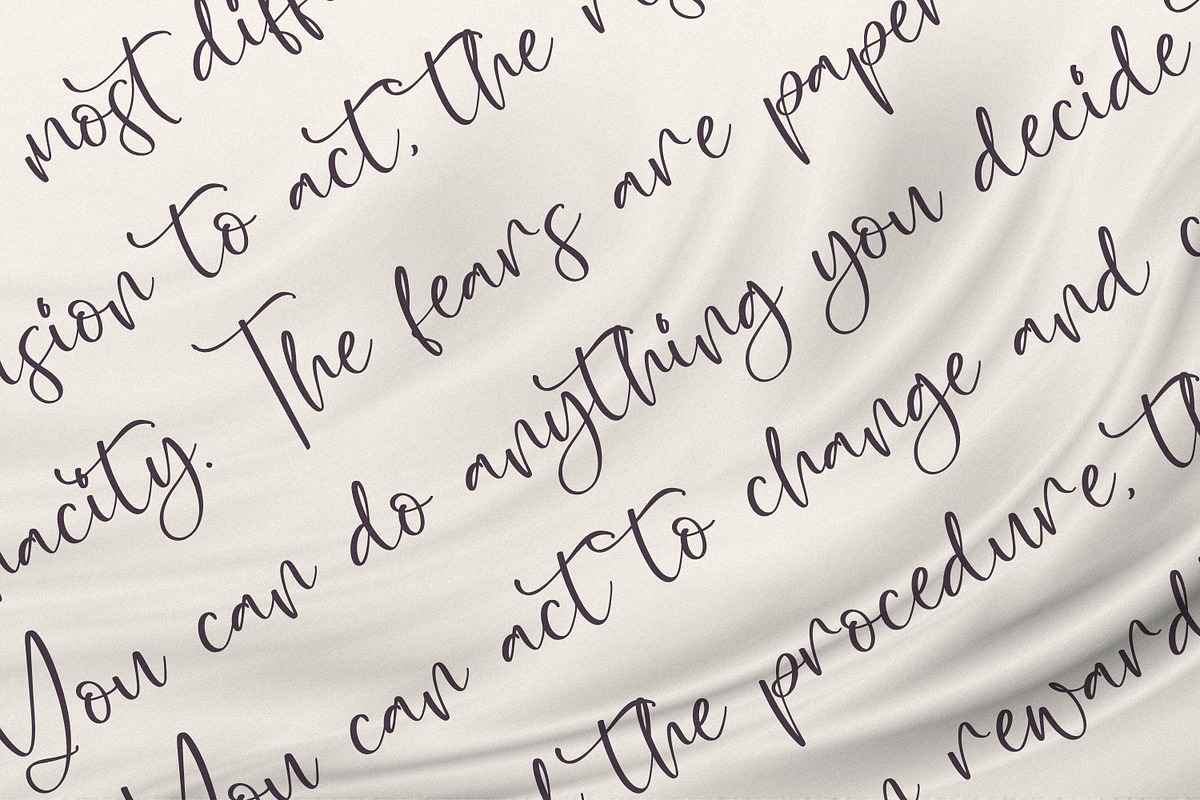 most
to act, the
The fears are paper
You can do anything you decide
You can act to change and
the procedure, 
reward